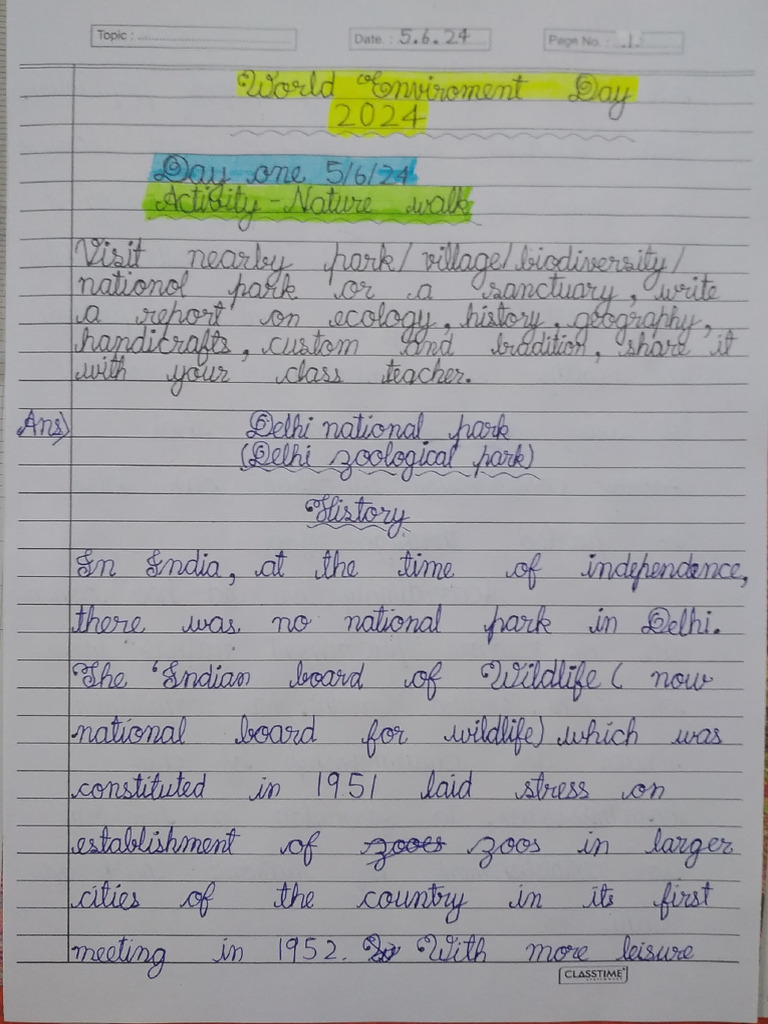 Topic :
Date. : 5.6.24
Page No. : 1.
World Enviroment Day
2024
Day one 5/6/24
Activity - Nature walk
Visit nearby park/ village/ biodiversity/
national park or a sanctuary, write
a report on ecology, history, geography,
handicrafts, custom and tradition, share it
with your class teacher.
Ans)
Delhi national park
(Delhi zoological park)
History
In India, at the time of independence,
there was no national park in Delhi.
The Indian board of Wildlife ( now
national board for wildlife) which was
constituted in 1951 laid stress on
establishment of zooes zoos in larger
cities of the country in its first
meeting in 1952. With more leisure
CLASSTIME